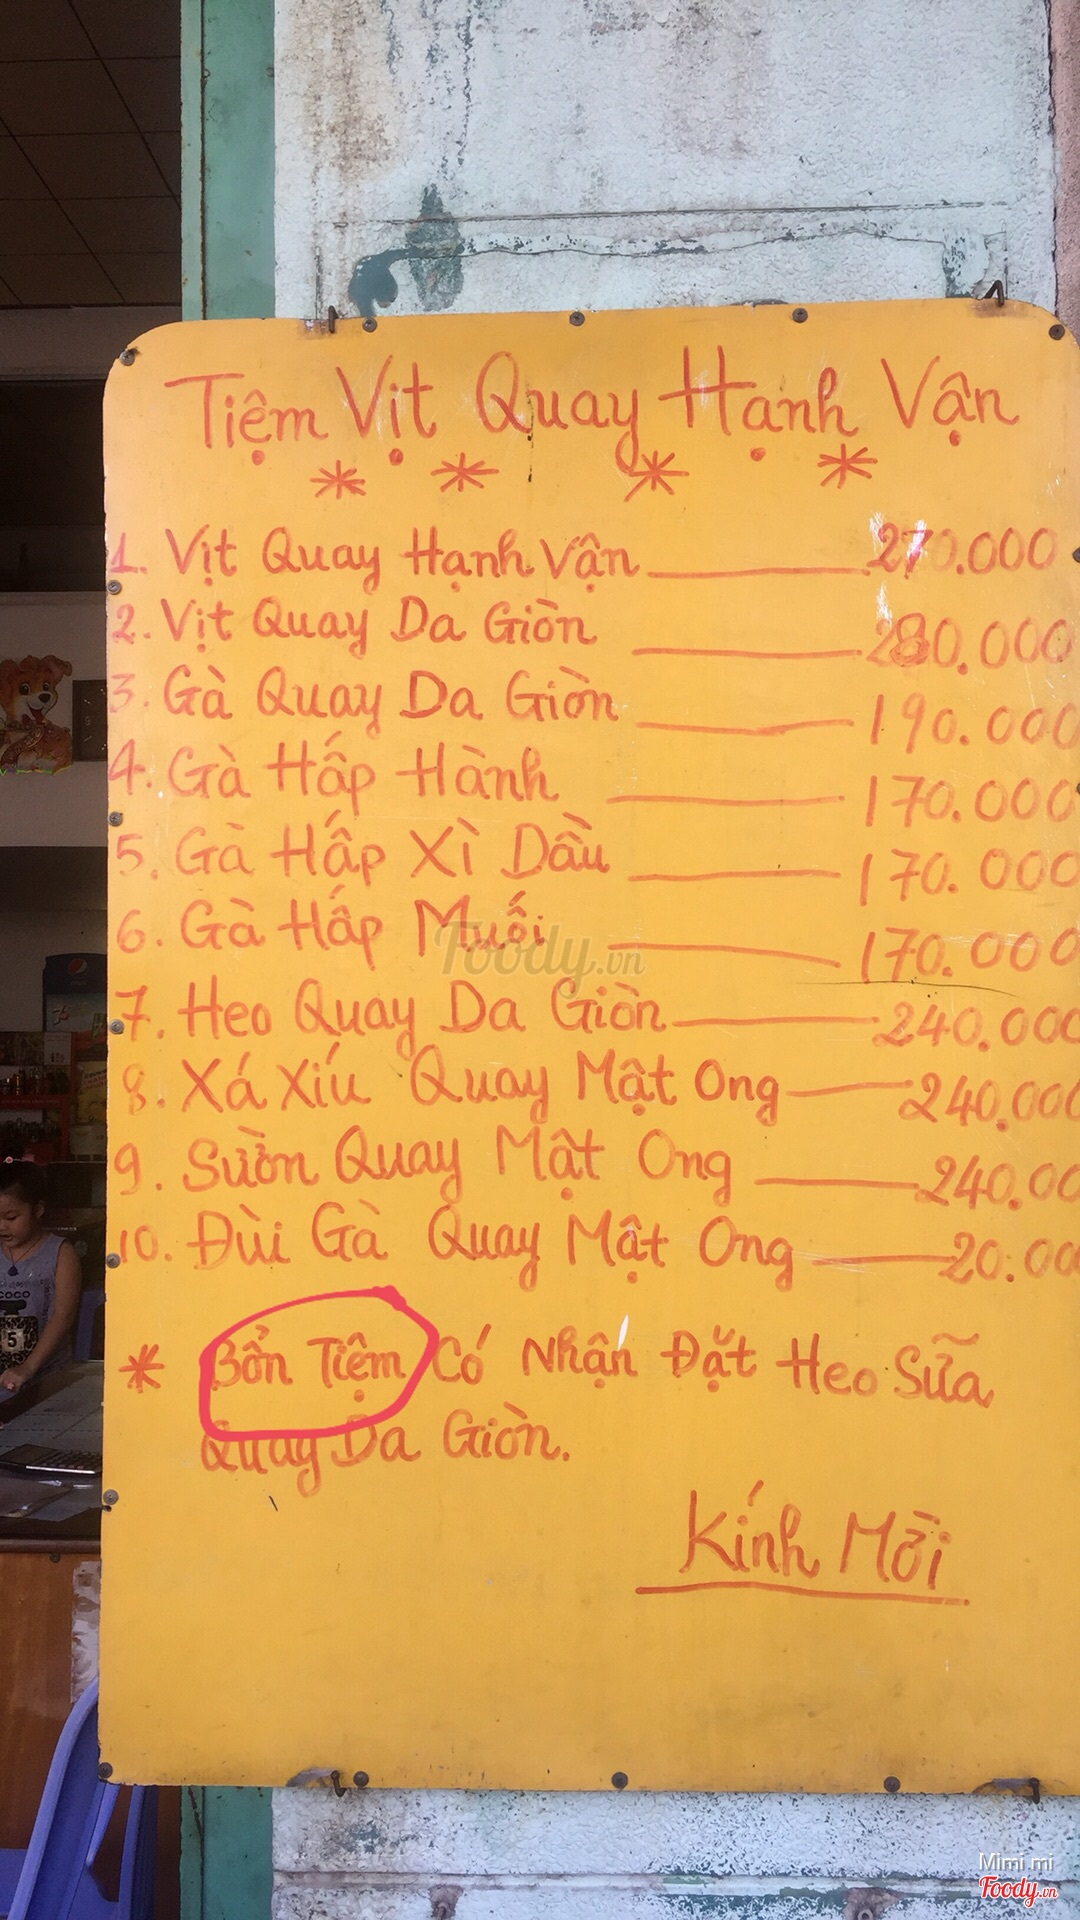 Tiệm Vịt Quay Hạnh Vận
* * * *
1. Vịt Quay Hạnh Vận 270.000
2. Vịt Quay Da Giòn 280.000
3. Gà Quay Da Giòn 190.000
4. Gà Hấp Hành 170.000
5. Gà Hấp Xì Dầu 170.000
6. Gà Hấp Muối 170.000
Foody.vn
7. Heo Quay Da Giòn 240.000
8. Xá Xíu Quay Mật Ong 240.000
9. Sườn Quay Mật Ong 240.00
10. Đùi Gà Quay Mật Ong 20.00
* Bổn Tiệm Có Nhận Đặt Heo Sữa
Quay Da Giòn.
Kính Mời
COCO
5
Mimi mi
Foody.vn